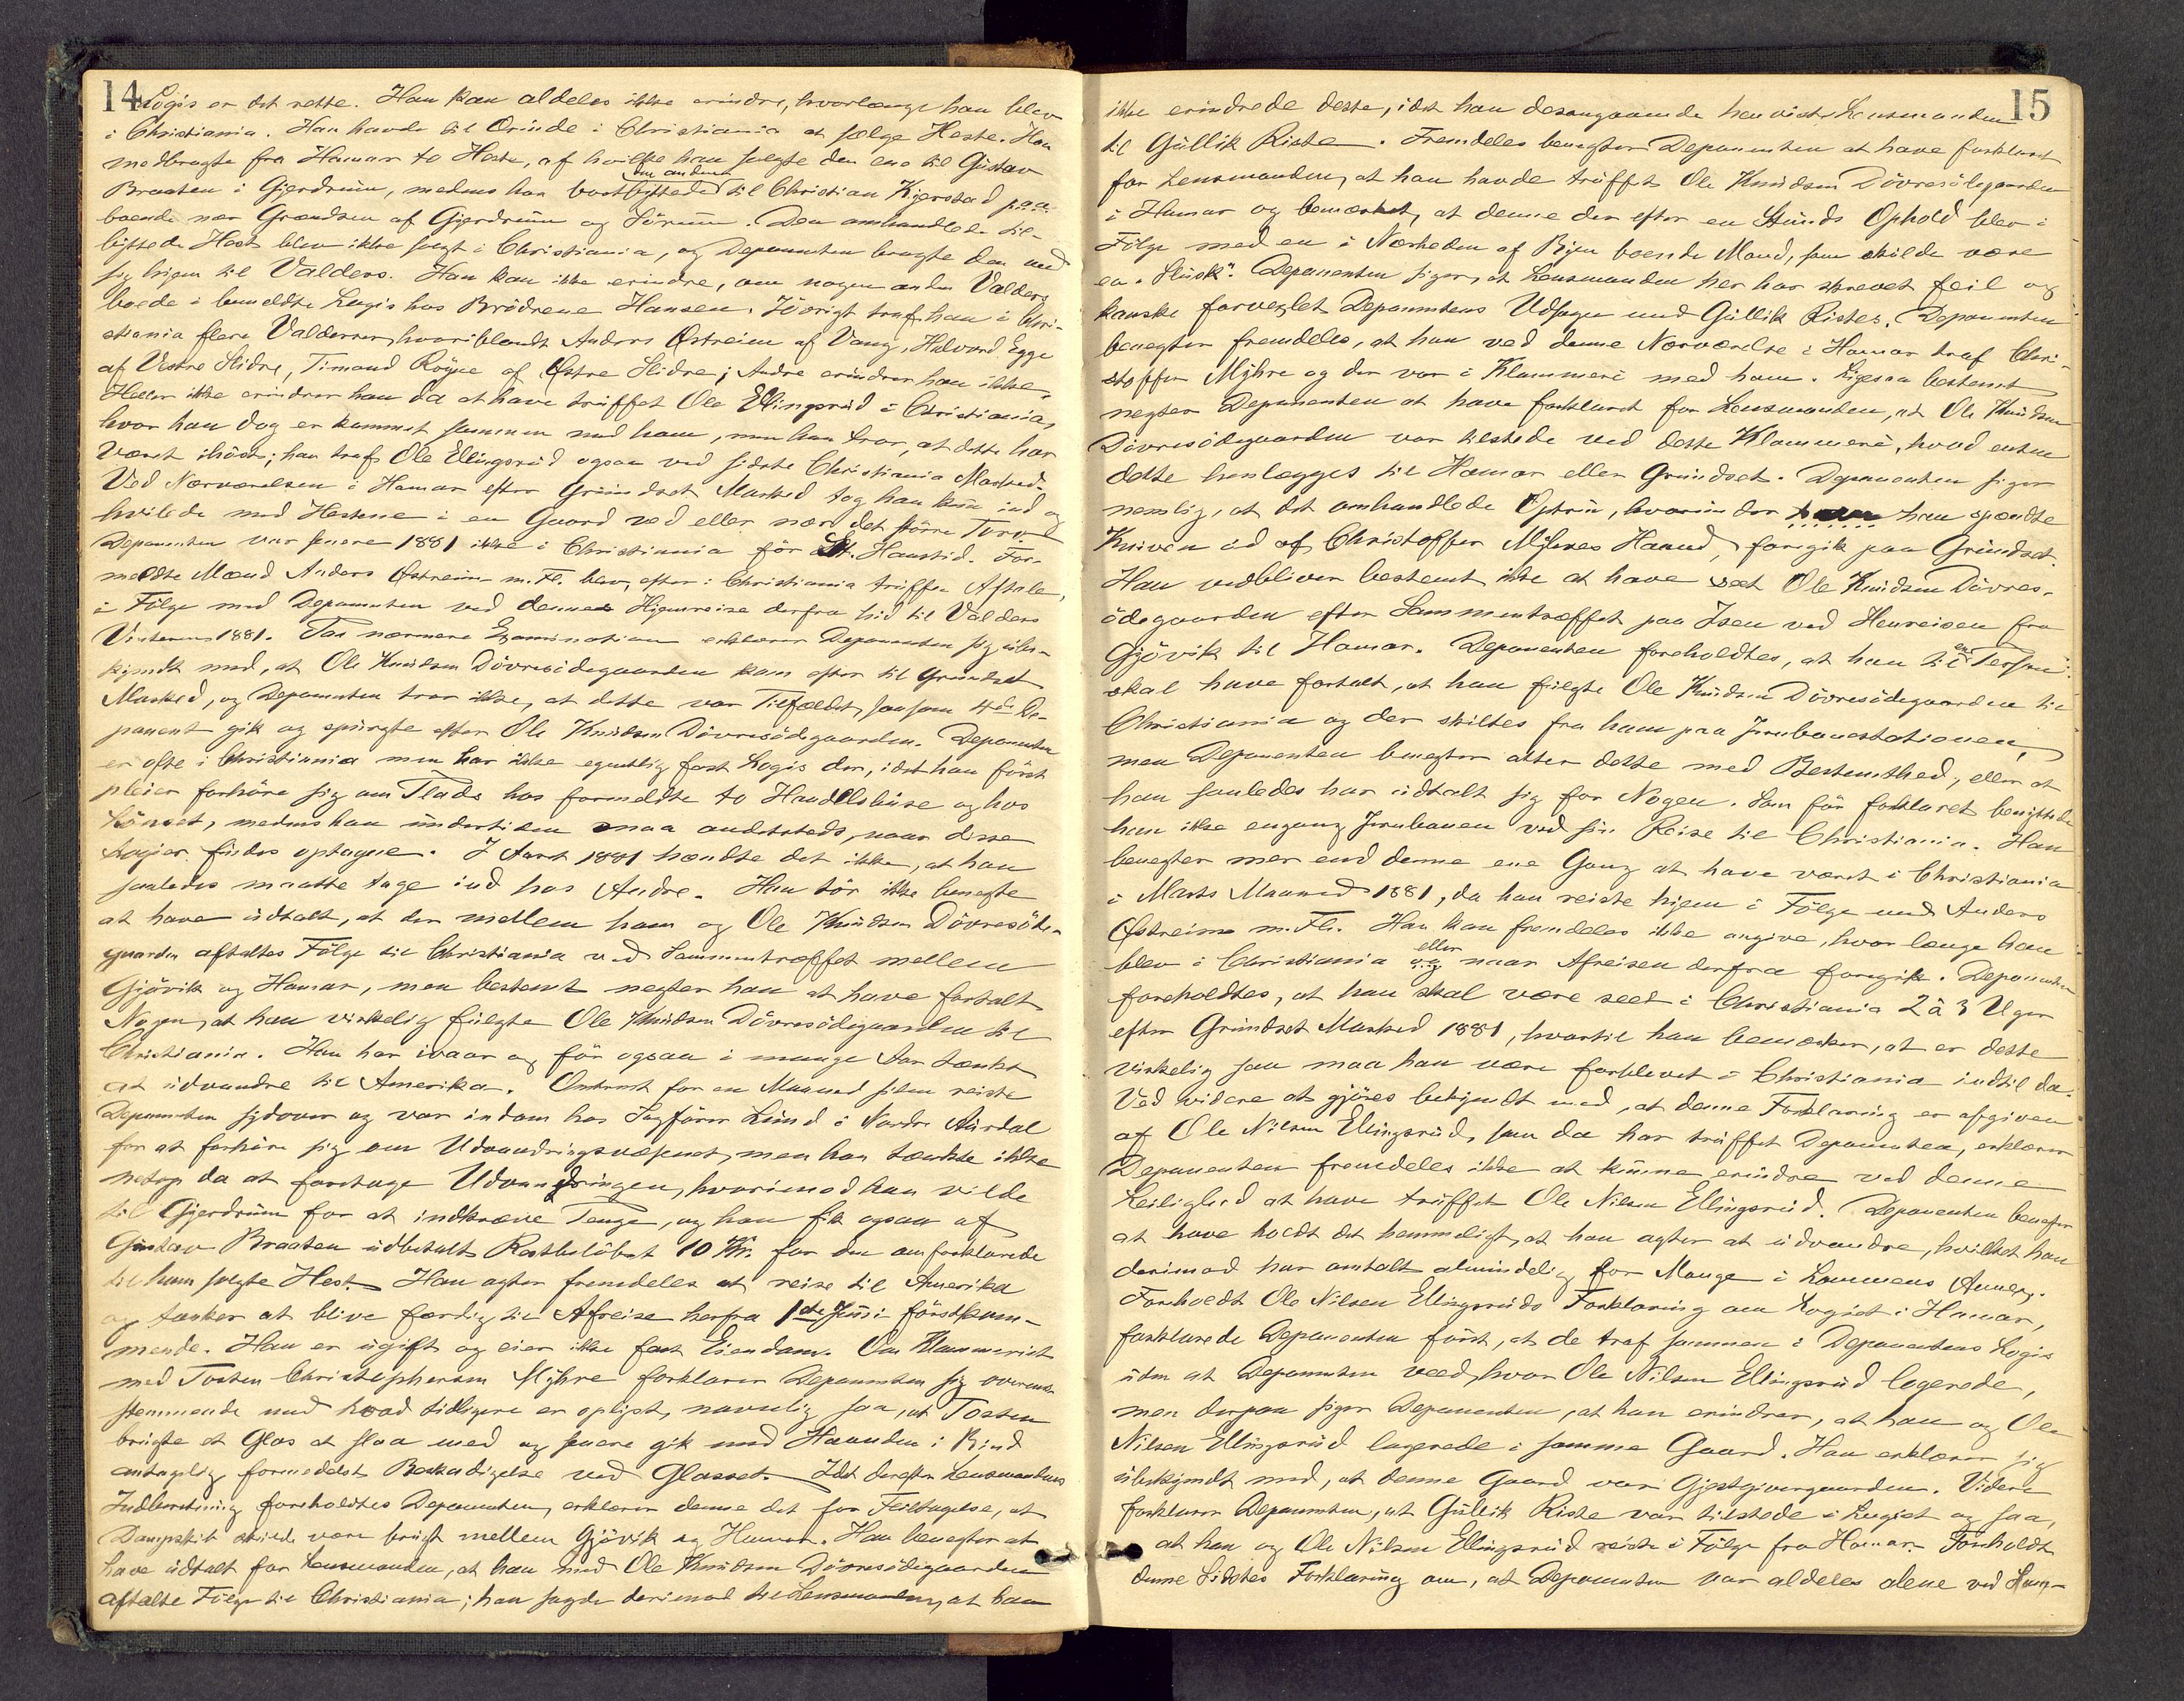 14
Logis er det rette. Han kan aldeles ikke erindre, hvorlænge han blev
i Christiania. Han havde til Ærinde i Christiania at sælge Heste. Han
medbragte fra Hamar to Heste, af hvilke han solgte den ene til Gustav
Braaten i Gjerdrum, medens han bortbyttede den anden til Christian Kjerstad paa-
boende nær Grændsen af Gjerdrum og Sörum. Den omhandlede til-
byttede Hest blev ikke solgt i Christiania, og Deponenten bragte den med
sig hjem til Valders. Han kan ikke erindre, om nogen anden Valders
boede i bemeldte Logis hos Brödrene Hansen. Iövrigt traf han i Chri-
stiania flere Valdrerser, hvoriblandt Anders Østreim af Vang, Halvord Egge
af Vestre Slidre, Timand Röyne af Østre Slidre; Andre erindrer han ikke.
Heller ikke erindrer han da at have truffet Ole Ellingsrud i Christiania,
hvor han dog er kommet sammen med ham, men han tror, at dette har
været ihöst; han traf Ole Ellingsrud ogsaa ved sidste Christiania Marked.
Ved Nærværelsen i Hamar efter Grundset Marked tog han kun ind og
hvilede med Hestene i en Gaard ved eller nær det större Torv.
Deponenten var senere 1881 ikke i Christiania för St. Hanstid. For-
meldte Mænd Anders Østreim m. Fl. blev, efter i Christiania truffen Aftale,
i Fölge med Deponenten ved dennes Hjemreise derfra hid til Valders
Vinteren 1881. Paa nærmere Examination erklærer Deponenten sig ube-
kjendt med, at Ole Knudsen Dövresödegaarden kom efter til Grundset
Marked, og Deponenten tror ikke, at dette var Tilfældet, saasom 4de De-
ponent gik og spurgte efter Ole Knudsen Dövresödegaarden. Deponenten
er ofte i Christiania men har ikke egentlig fast Logis der, idet han först
pleier forhöre sig om Plads hos formeldte to Handelshuse og hos
medens han undertiden maa andetsteds, naar disse
Logier findes optagne. I Aaret 1881 hændte det ikke, at han
saaledes maatte tage ind hos Andre. Han tör ikke benegte
at have udtalt, at der mellem ham og Ole Knudsen Dövresöde-
gaarden aftaltes Fölge til Christiania ved Sammentræffet mellem
Gjövik og Hamar, men bestemt negter han at have fortalt
Nogen, at han virkelig fulgte Ole Knudsen Dövresödegaarden til
Christiania. Han har ivaar og för ogsaa i mange Aar tænkt
at udvandre til Amerika. Omtrent for en Maaned siden reiste
Deponenten sydover og var indom hos Sagförer Lund i Nordre Aurdal
for at forhöre sig om Udvandringsvæsenet, men han tænkte ikke
netop da at foretage Udvandringen, hvorimod han vilde
til Gjerdrum for at indkræve Penge, og han fik ogsaa af
Gustav Braaten udbetalt Restbelöbet 10 Kr. for den omforklarede
til ham solgte Hest. Han agter fremdeles at reise til Amerika
og tænker at blive færdig til Afreise herfra 1ste Juni förstkom-
mende. Han er ugift og eier ikke fast Eiendom. Om Klammeriet
med Tosten Christophersen Myhre forklarer Deponenten sig overens-
stemmende med hvad tidligere er oplyst, navnlig saa, at Tosten
brugte et Glas at slaa med og senere gik med Haanden i Bind
antagelig formedelst Beskadigelse ved Glasset. Idet derefter Lensmandens
Indberetning foreholdtes Deponenten, erklærer denne det for Feiltagelse, at
Dampskib skulde være brugt mellem Gjövik og Hamar. Han benegter at
have udtalt for Lensmanden, at han med Ole Knudsen Dövresödegaarden
aftalte Fölge til Christiania; han sagde derimod til Lensmanden, at han
15
ikke erindrede dette, idet han desangaaende henviste Lensmanden
til Gullik Riste. Fremdeles benegter Deponenten at have forklaret
for Lensmanden, at han havde truffet Ole Knudsen Dövresödegaarden
i Hamar og bemærket, at denne der efter en Stunds Ophold blev i
Fölge med en i Nærheden af Byen boende Mand, som skulde være
en "Slusk". Deponenten siger, at Lensmanden her har skrevet feil og
kanske forvexlet Deponentens Udsagn med Gullik Ristes. Deponenten
benegter fremdeles, at han ved denne Nærværelse i Hamar traf Chri-
stoffer Myhre og der var i Klammeri med ham. Ligesaa bestemt
negter Deponenten at have forklaret for Lensmanden, at Ole Knudsen
Dövresödegaarden var tilstede ved dette Klammeri, hvad enten
dette henlægges til Hamar eller Grundset. Deponenten siger
nemlig, at det omhandlede Optrin, hvorunder han spændte
Kniven ud af Christoffer Myhres Haand, foregik paa Grundset.
Han vedbliver bestemt ikke at have seet Ole Knudsen Dövres-
ödegaarden efter Sammentræffet paa Isen ved Henreisen fra
Gjövik til Hamar. Deponenten foreholdtes, at han til en Person
skal have fortalt, at han fulgte Ole Knudsen Dövresödegaarden til
Christiania og der skiltes fra ham paa Jernbanestationen,
men Deponenten benegter atter dette med Bestemthed, eller at
han saaledes har udtalt sig for Nogen. Som för forklaret benyttede
han ikke engang Jernbanen ved sin Reise til Christiania. Han
benegter mer end denne ene Gang at have været i Christiania
i Marts Maaned 1881, da han reiste hjem i Fölge med Anders
Østreim m. Fl. Han kan fremdeles ikke angive, hvor længe han
blev i Christiania og eller naar Afreisen derfra foregik. Deponenten
foreholdtes, at han skal være seet i Christiania 2 à 3 Uger
efter Grundset Marked 1881, hvortil han bemærker, at er dette
virkelig saa maa han være forblevet i Christiania indtil da.
Ved videre at gjöres bekjendt med, at denne Forklaring er afgiven
af Ole Nilsen Ellingsrud, som da har truffet Deponenten, erklærer
Deponenten fremdeles ikke at kunne erindre ved denne
Leilighed at have truffet Ole Nilsen Ellingsrud. Deponenten benegter
at have holdt det hemmeligt, at han agter at udvandre, hvilket han
derimod har omtalt almindelig for Mange i Lommens Annex.
Foreholdt Ole Nilsen Ellingsruds Forklaring om Logiet i Hamar,
forklarede Deponenten först, at de traf sammen i Deponentens Logis
uden at Deponenten veed, hvor Ole Nilsen Ellingsrud logerede,
men derpaa siger Deponenten, at han erindrer, at han og Ole
Nilsen Ellingsrud logerede i samme Gaard. Han erklærer sig
ubekjendt med, at denne Gaard var Gjestgivergaarden. Videre
forklarer Deponenten, at Gullik Riste var tilstede i Logiet og saa,
at han og Ole Nilsen Ellingsrud reiste i Fölge fra Hamar. Foreholdt
denne Sidstes Forklaring om, at Deponenten var aldeles alene ved Ham-